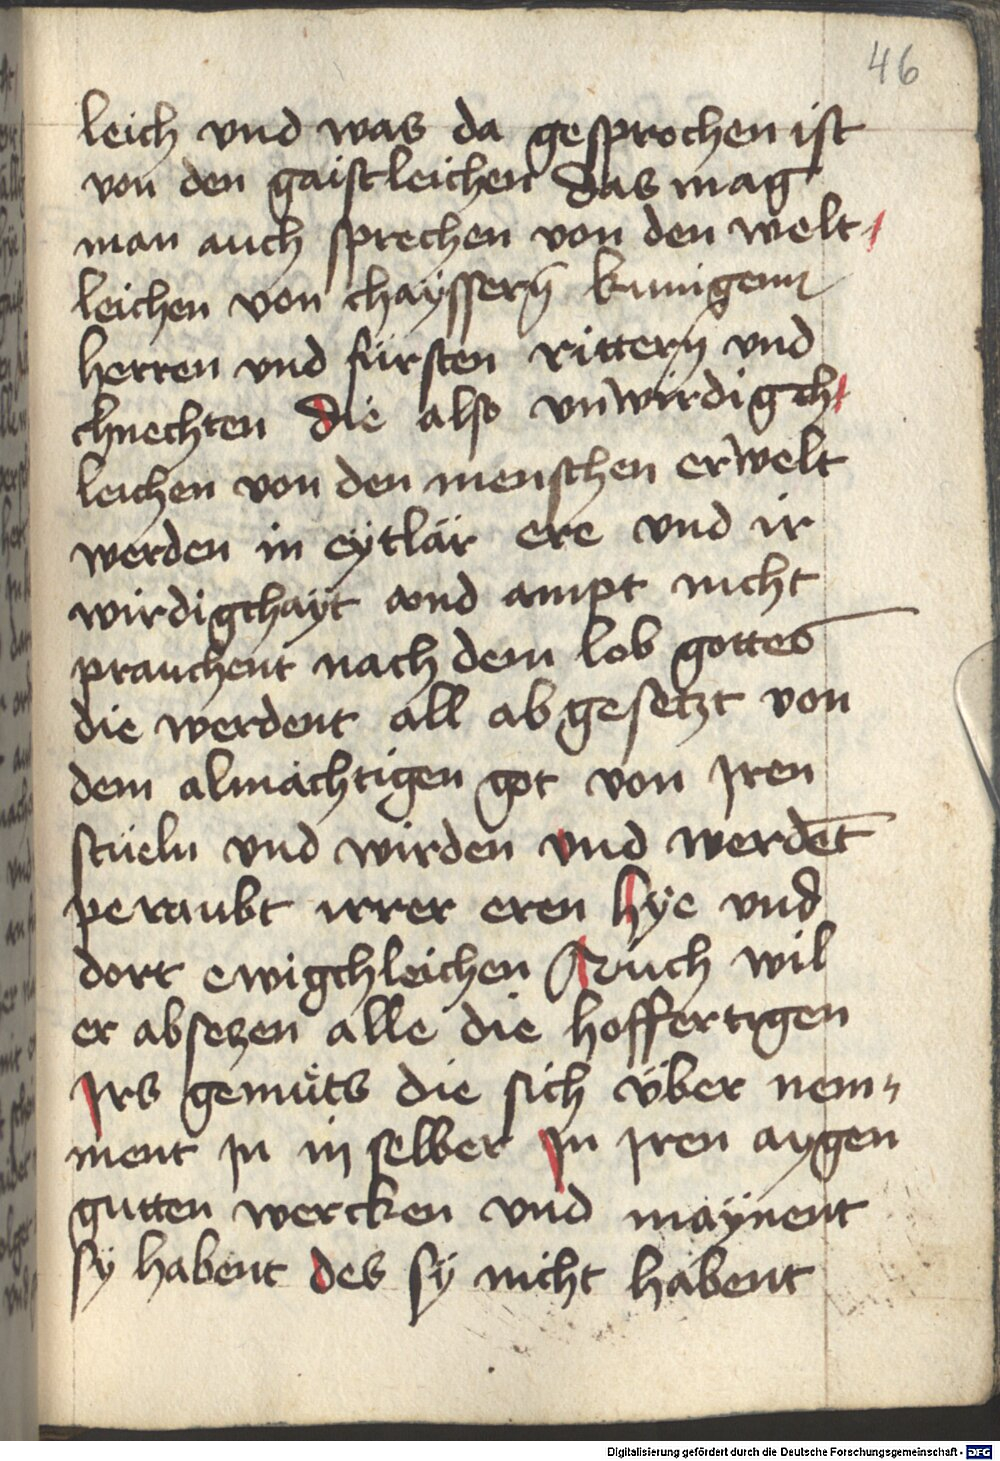 46
leich vnd was da gesprochen ist
von den gaistleichen das mag
man auch sprechen von den welt⸗
leichen von chaysserñ kunigenn
herren vnd fürsten ritterñ vnd
chnechten die also vnwirdigch⸗
leichen von den menschen erwelt
werden in eÿtlär ere vnd ir
wirdigchaÿt vnd ampt nicht
prauchent nach dem lob gottes
die werdent all abgesetzt von
dem almächtigen got von Jren
stüeln vnd wirden vnd werdēt
peraubt irrer eren hÿe vnd
dort ewigchleichen Auch wil
er abseczen alle die hoffertigen
Jrs gemüts die sich über nem⸗
ment Jn in selber Jn Jren aygen
gutten wercken vnd maÿnent
sÿ habent des sÿ nicht habent
Digitalisierung gefördert durch die Deutsche Forschungsgemeinschaft - DFG